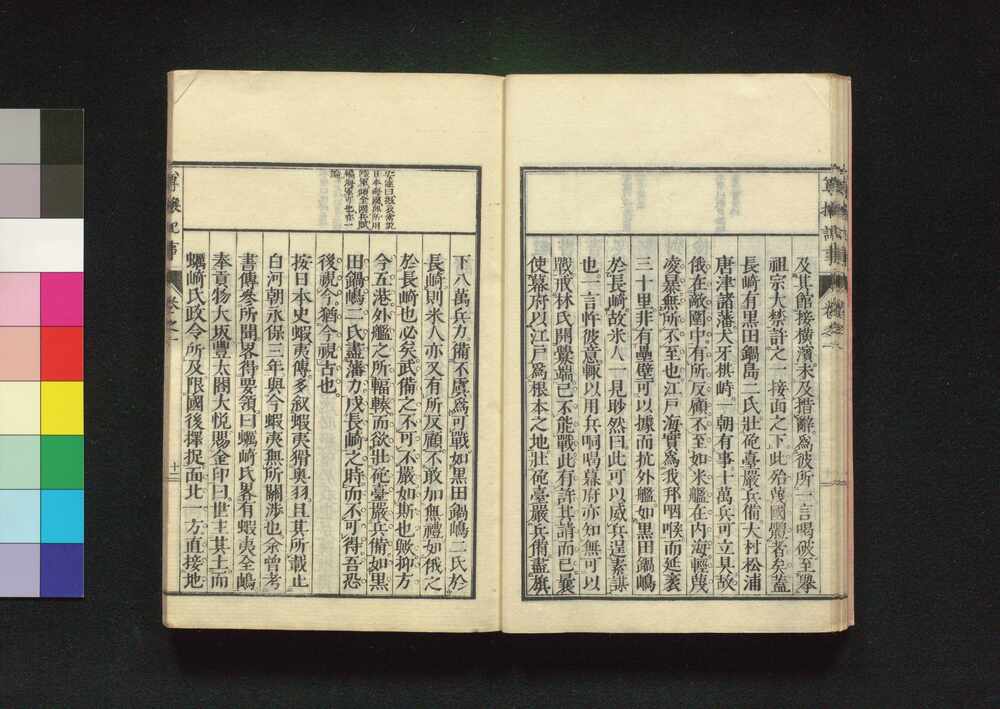 及其館接橫濱未及措辭爲彼所一言喝破至擧
祖宗大禁許之一接面之下此殆蔑國體者矣蓋
長崎有黑田鍋島二氏壯砲臺嚴兵備大村松浦
唐津諸藩犬牙棋峙一朝有事十萬兵可立具故
俄在敵圍中有所反顧不至如米艦在內海輕蔑
凌暴無所不至也江戶海實爲我邦咽喉而延袤
三十里非有壘壁可以據而抗外艦如黑田鍋嶋
於長崎故米人一見眇然曰此可以威兵逞素謀
也一言忤彼意輒以用兵哃喝幕府亦知無可以
戰戒林氏開釁端已不能戰此有許其請而已曩
使幕府以江戶爲根本之地壯砲臺嚴兵備盡旗
下八萬兵力備不虞爲可戰如黑田鍋嶋二氏於
長崎則米人亦又有所反顧不敢加無禮如俄之
於長崎也必矣武備之不可不嚴如斯也歟抑方
今五港外艦之所輻輳而欲壯砲臺嚴兵備如黑
田鍋嶋二氏盡藩力戍長崎之時而不可得吾恐
後視今猶今視古也
按日本史蝦夷傳多叙蝦夷猾奧羽且其所載止
白河朝永保三年與今蝦夷無所關涉也余曾考
書傳參所聞畧得要領曰蠣崎氏畧有蝦夷全嶋
奉貢物大坂豐太閤大悅賜金印曰世主其土而
蠣崎氏政令所及限國後擇捉面北一方直接地
卷之一
十二